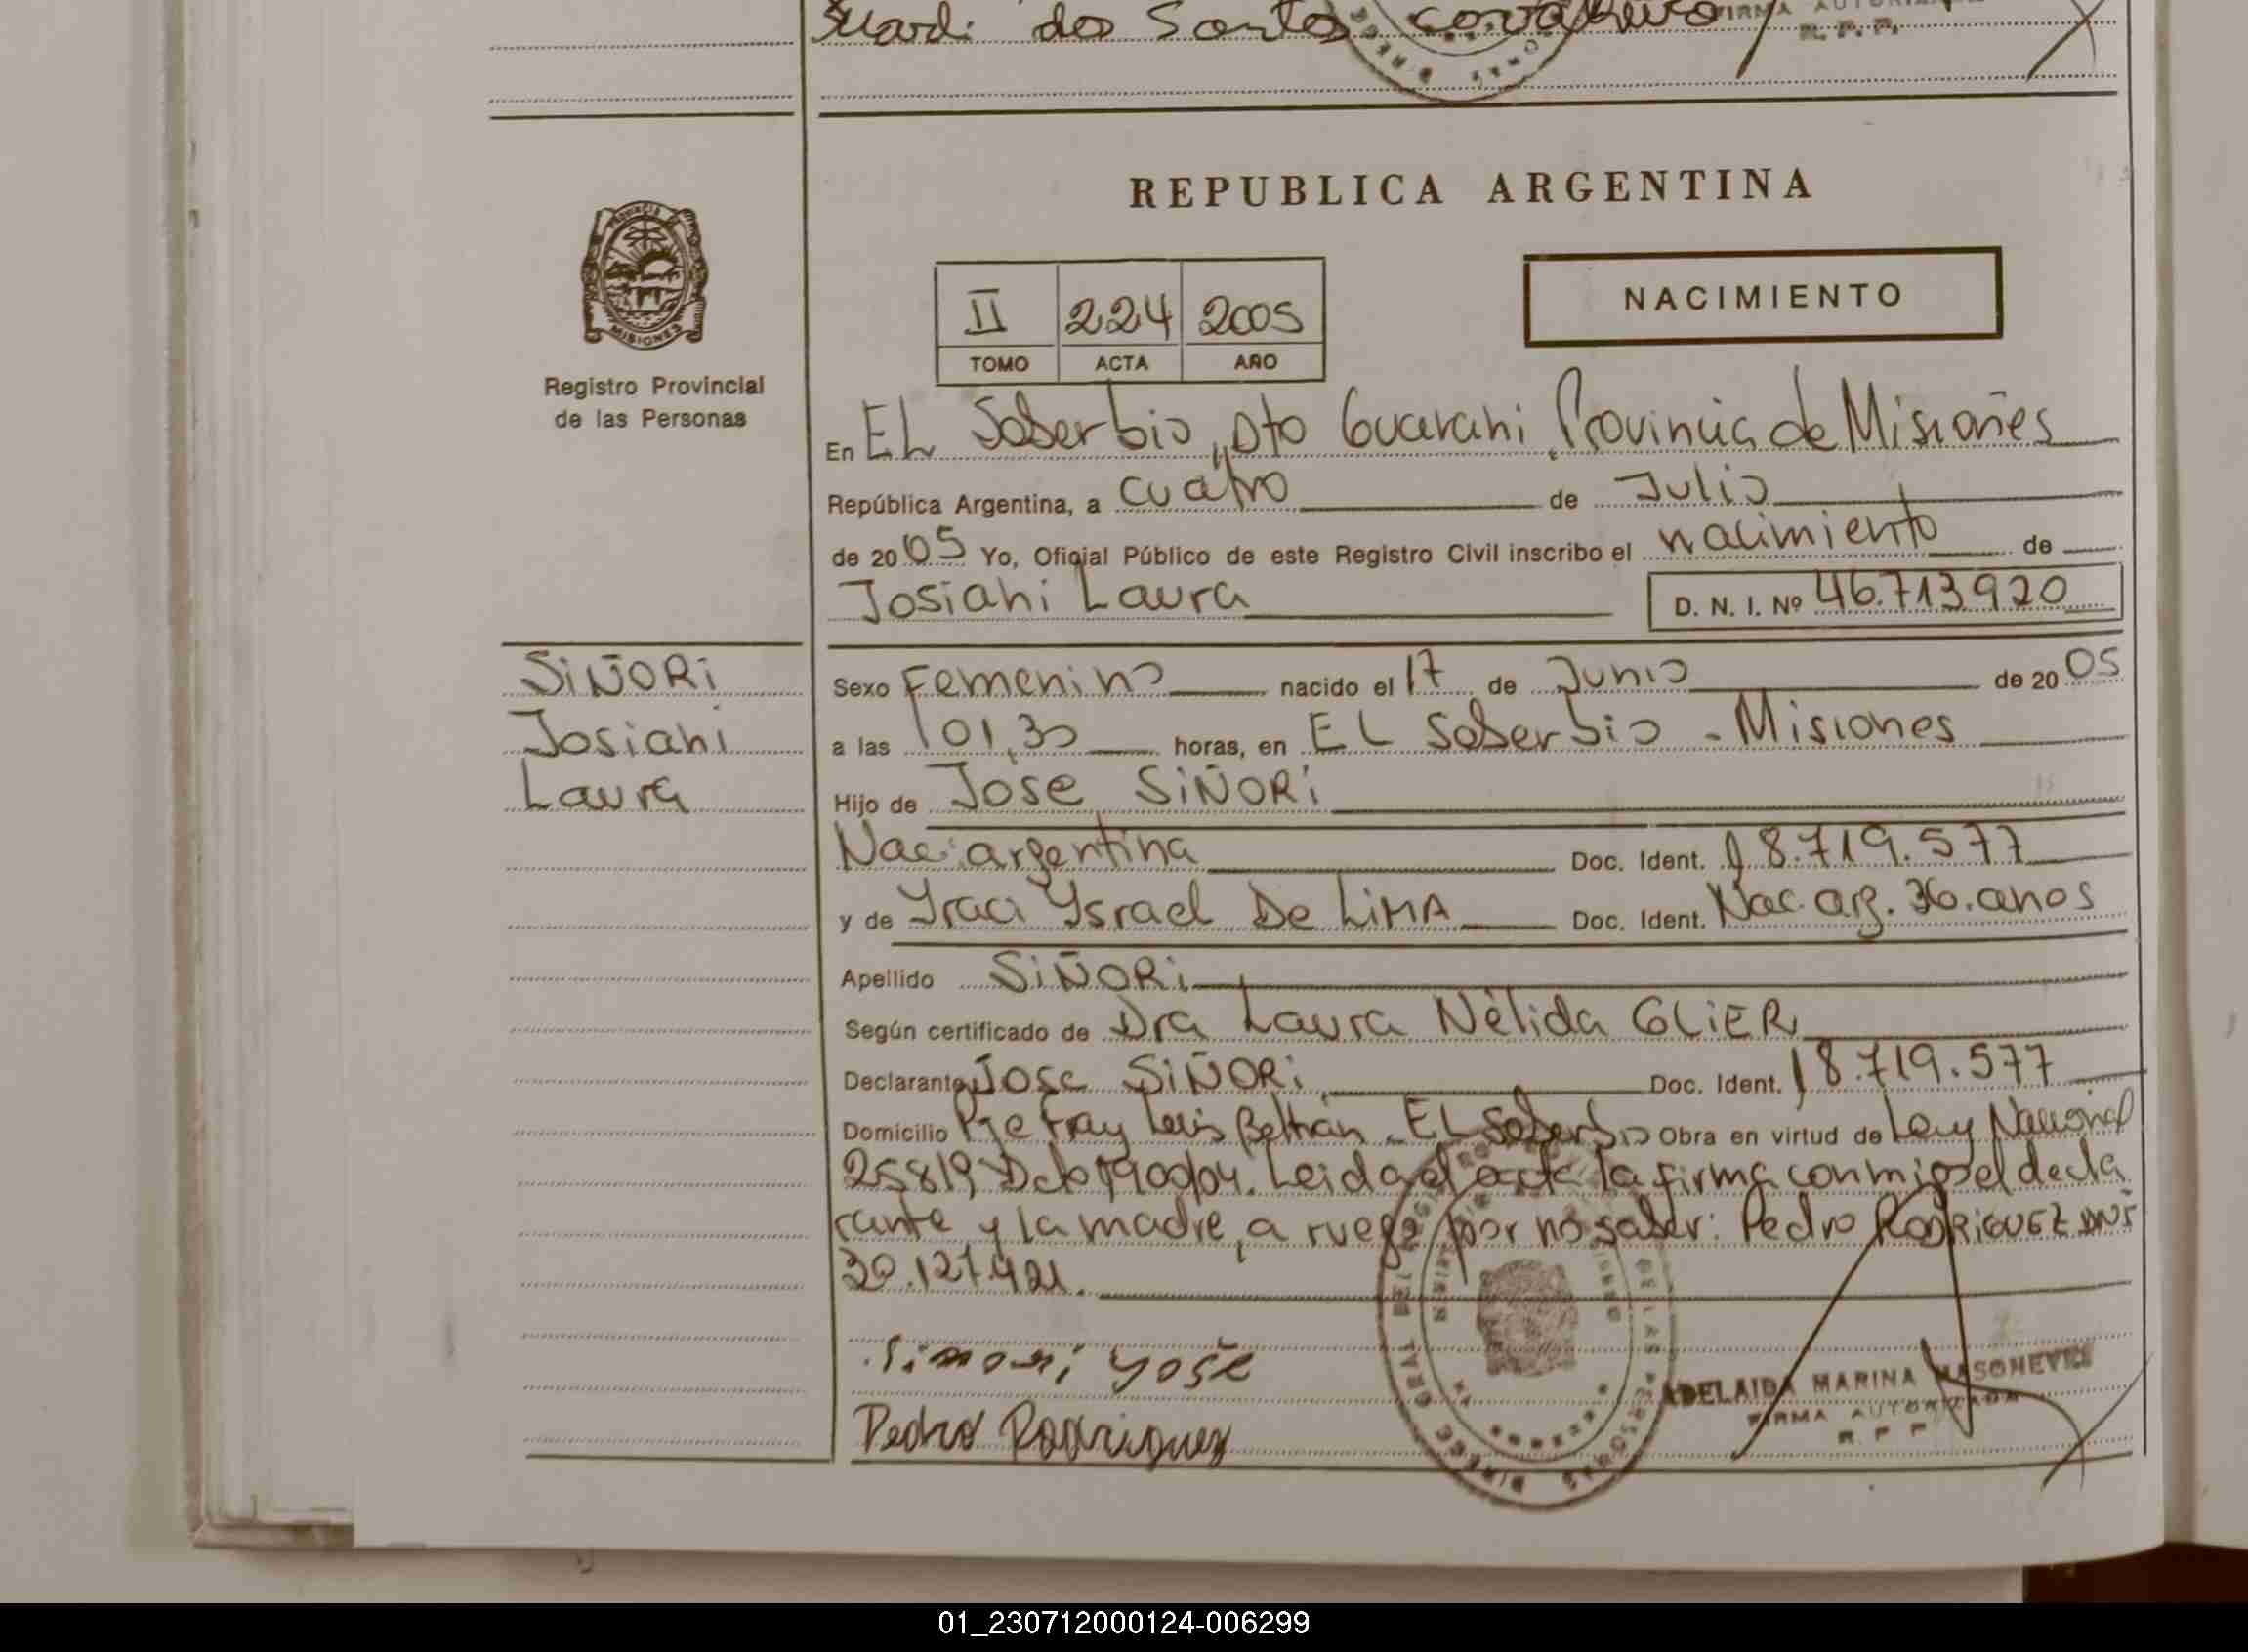 dos Santos
FIRMA AUTORIZADA
R. P. P.
REPUBLICA ARGENTINA
PROVINCIA DE
MISIONES
Registro Provincial
de las Personas
II 224 2005
TOMO ACTA AÑO
NACIMIENTO
En EL Soberbio, Dto Guarani, Provincia de Misiones
República Argentina, a cuatro de Julio
de 2005 Yo, Oficial Público de este Registro Civil inscribo el nacimiento de
Josiani Laura D. N. I. Nº 46.713920
SiÑORi
Josiani
Laura
Sexo Femenino nacido el 17 de Junio de 2005
a las 01,30 horas, en EL Soberbio - Misiones
Hijo de Jose SiÑORi
Nac: argentina Doc. Ident. 18.719.577
y de Yraci Ysrael De LiMA Doc. Ident. Nac. arg. 36. anos
Apellido SiÑORi
Según certificado de Dra Laura Nélida GLiER
Declarante Jose SiÑORi Doc. Ident. 18.719.577
Domicilio Pje Fray Luis Beltran - EL Soberbio Obra en virtud de Ley Nacional
25819 Dcto 1900/04. Leida el acta la firma conmigo el decla
rante y la madre, a ruego por no saber: Pedro RODRIGUEZ DNI
30.127.421.
Simori yose
Pedro Rodriguez
ADELAIDA MARINA
FIRMA AUTORIZADA
R P P
01_230712000124-006299